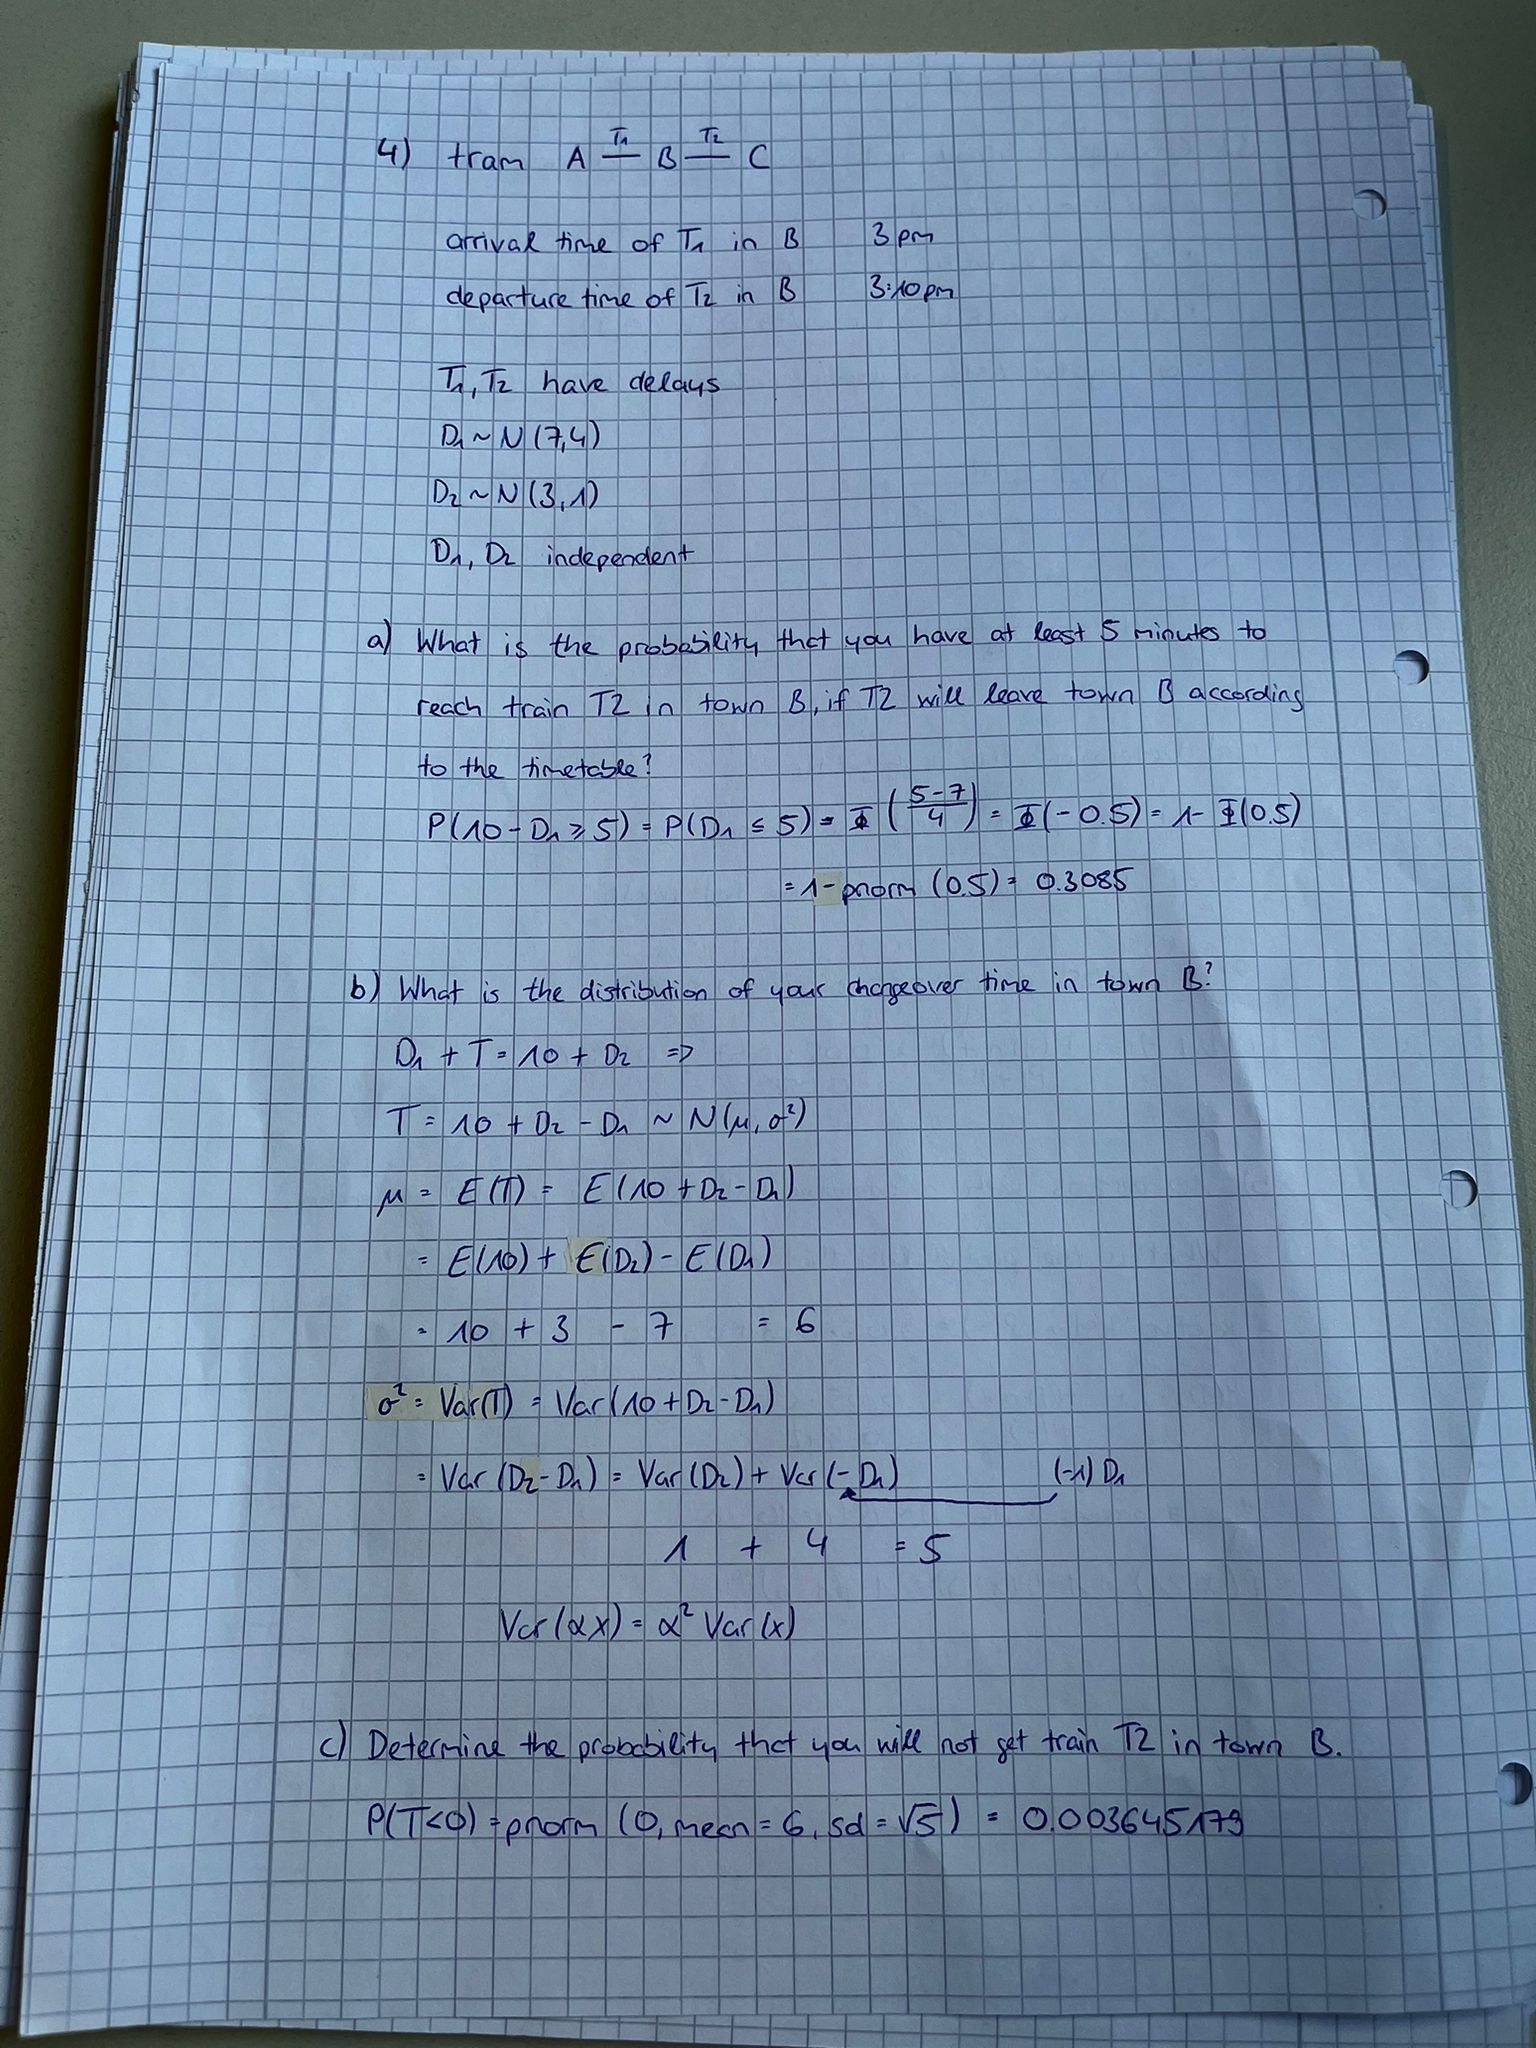 4) tram A —T1— B —T2— C
arrival time of T1 in B 3 pm
departure time of T2 in B 3:10 pm
T1, T2 have delays
D1 ~ N (7,4)
D2 ~ N (3,1)
D1, D2 independent
a) What is the probability that you have at least 5 minutes to
reach train T2 in town B, if T2 will leave town B according
to the timetable?
P(10 - D1 ≥ 5) = P(D1 ≤ 5) = Φ((5-7)/4) = Φ(-0.5) = 1 - Φ(0.5)
= 1 - pnorm (0.5) = 0.3085
b) What is the distribution of your changeover time in town B?
D1 + T = 10 + D2 =>
T = 10 + D2 - D1 ~ N(μ, σ²)
μ = E(T) = E(10 + D2 - D1)
= E(10) + E(D2) - E(D1)
= 10 + 3 - 7 = 6
σ² = Var(T) = Var(10 + D2 - D1)
= Var (D2 - D1) = Var (D2) + Var (-D1) (-1) D1
1 + 4 = 5
Var (αx) = α² Var (x)
c) Determine the probability that you will not get train T2 in town B.
P(T<0) = pnorm (0, mean = 6, sd = √5) = 0.003645179